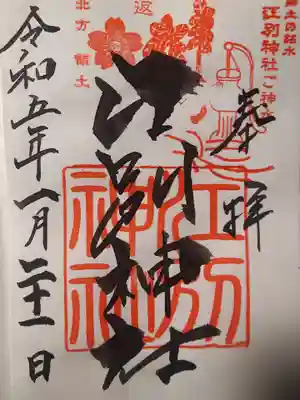 奉拝
江別神社
令和五年一月二十一日
郷土の銘水
江別神社ご神水
返
北方領土
江別
神社